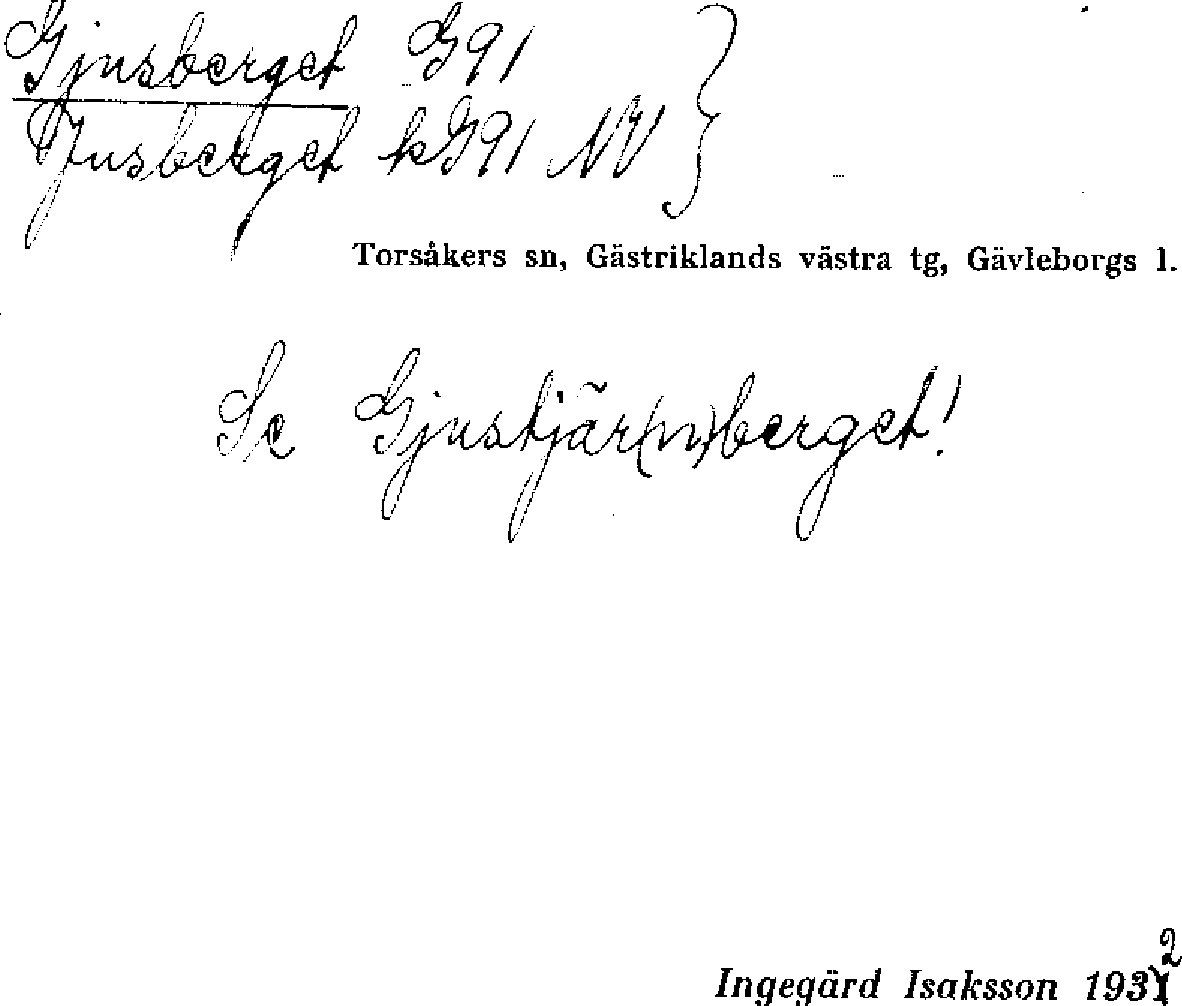 Gjusberget G91 }
Jusberget kG91 NV }
Torsåkers sn, Gästriklands västra tg, Gävleborgs l.
Se Gjustjär(n)berget!
Ingegärd Isaksson 1932